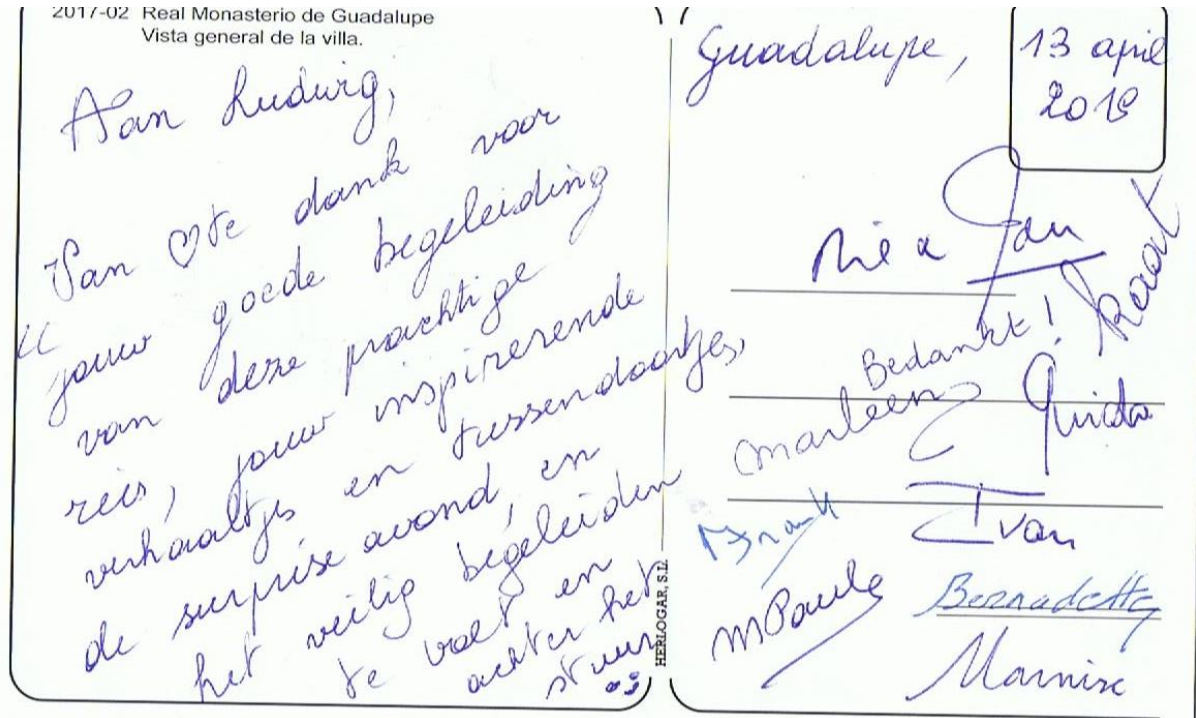 2017-02 Real Monasterio de Guadalupe
Vista general de la villa.
Aan Ludwig,
Van ♡te dank voor
jouw goede begeleiding
van deze prachtige
reis, jouw inspirerende
verhaaltjes en tussendoortjes,
de surprise avond, en
het veilig begeleiden
te voet en
achter het
stuur
HERLOGAR, S.L.
Guadalupe,
13 april
2019
Ria & Jan
Kaat
Bedankt!
Marleen
Guido
Ivan
Frank
MPaule
Bernadette
Marnix